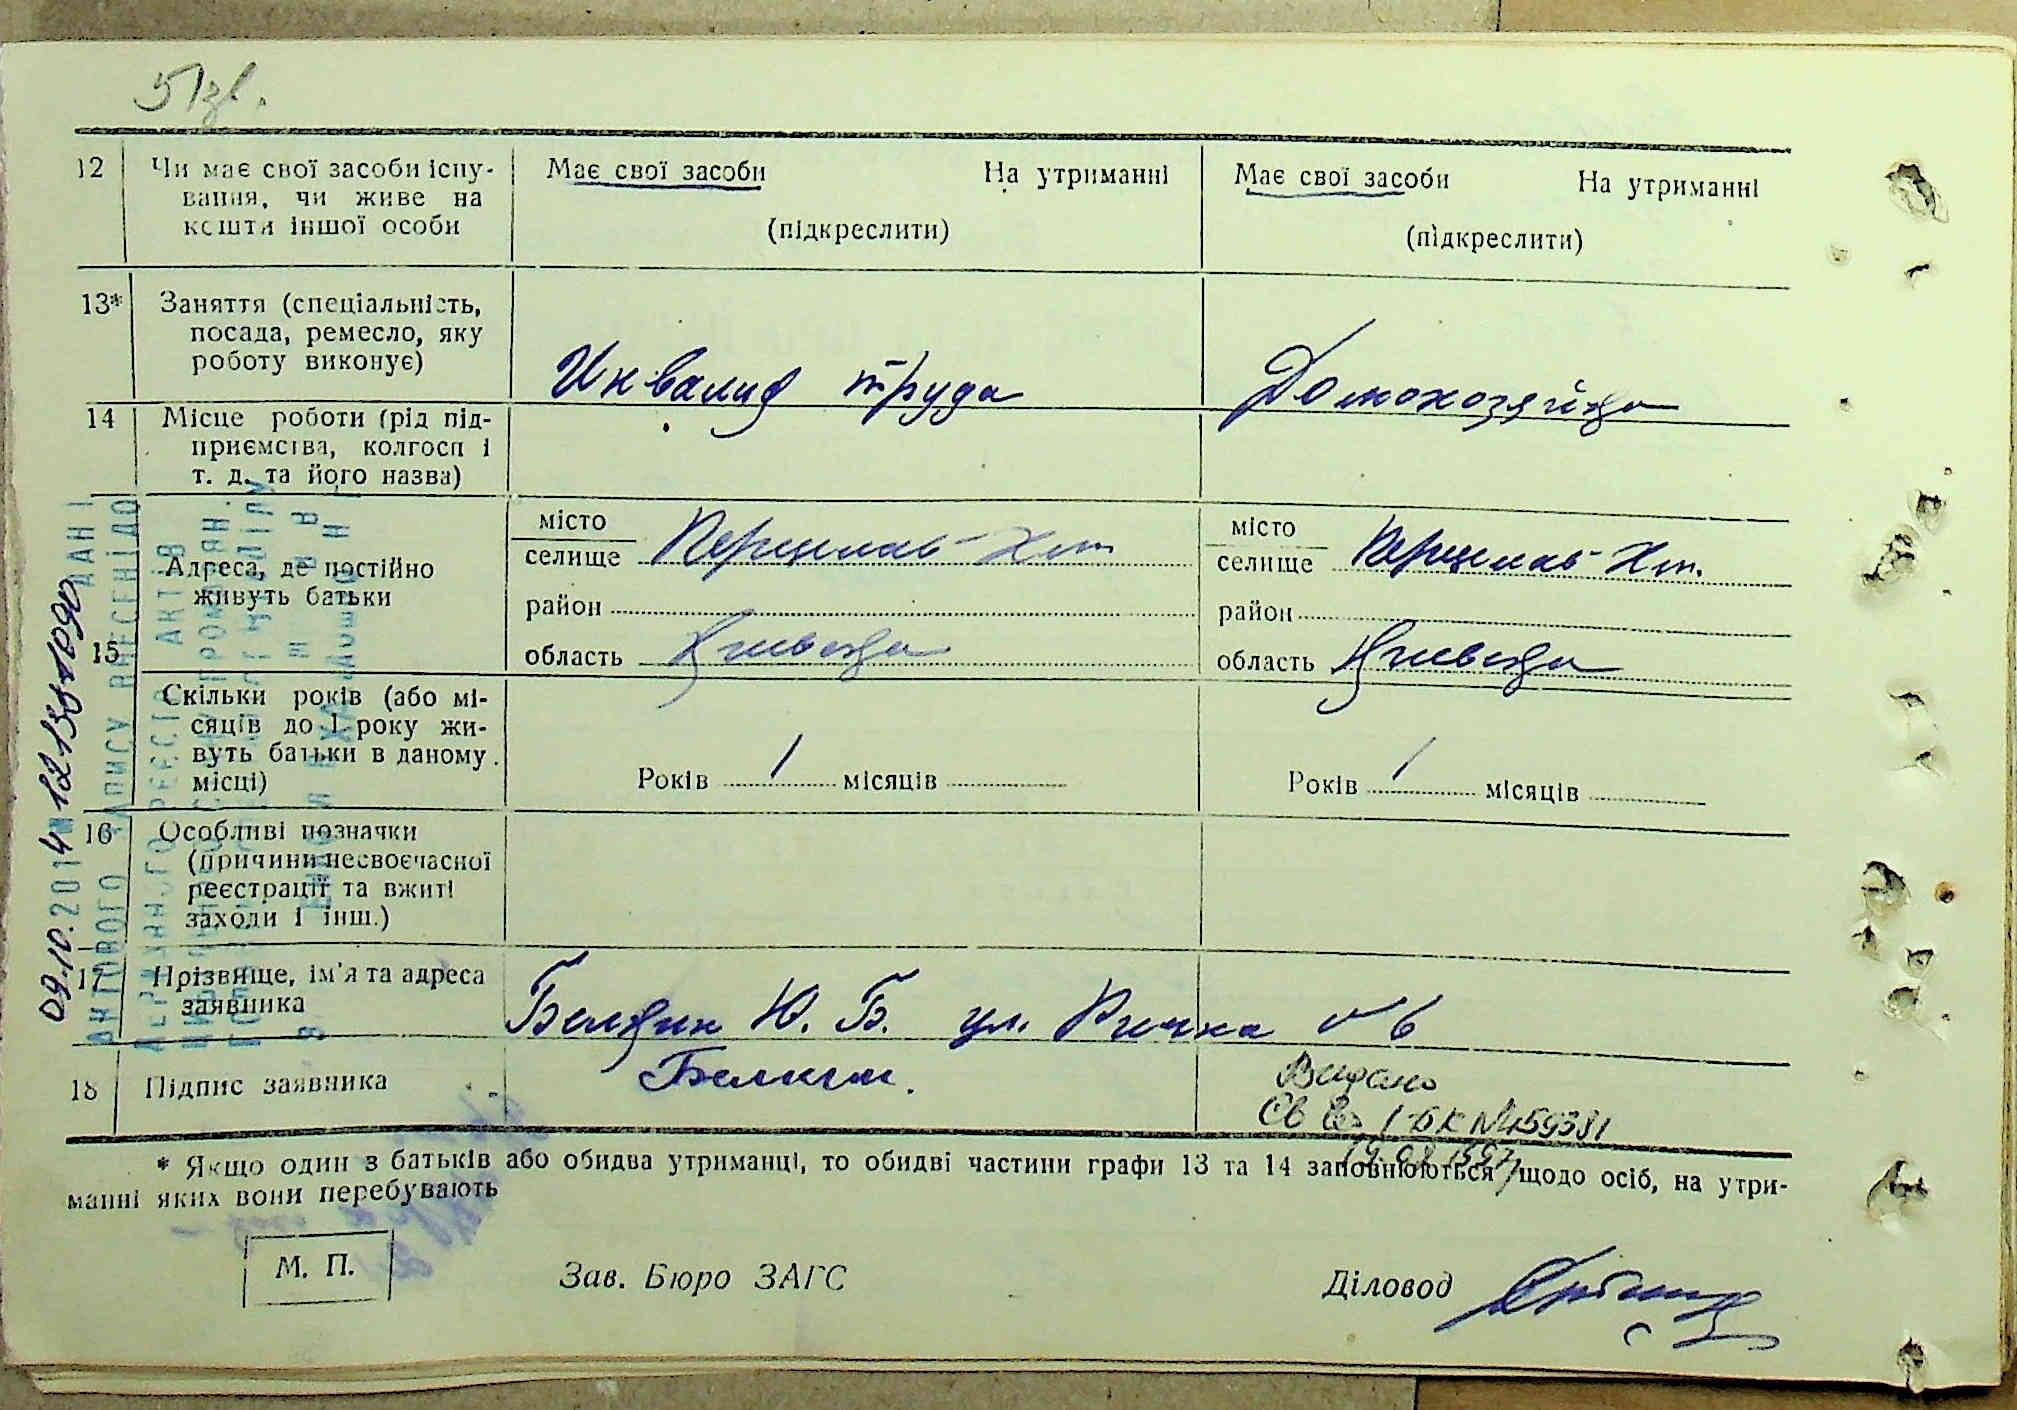 51зв.
12 Чи має свої засоби існу-
вання, чи живе на
кошти іншої особи
Має свої засоби На утриманні
(підкреслити)
Має свої засоби На утриманні
(підкреслити)
13* Заняття (спеціальність,
посада, ремесло, яку
роботу виконує)
Инвалид труда
Домохозяйка
14 Місце роботи (рід під-
приємства, колгосп і
т. д. та його назва)
15
Адреса, де постійно
живуть батьки
місто
селище Переяслав-Хм.
район
область Киевская
місто
селище Переяслав-Хм.
район
область Киевская
Скільки років (або мі-
сяців до 1 року жи-
вуть батьки в даному
місці)
Років 1 місяців
Років 1 місяців
16 Особливі позначки
(причини несвоєчасної
реєстрації та вжиті
заходи і інш.)
17 Прізвище, ім'я та адреса
заявника
Белкин Ю. Б. ул.
18 Підпис заявника
Белкин.
Видано
I-БК №459381
* Якщо один з батьків або обидва утриманці, то обидві частини графи 13 та 14 заповнюються щодо осіб, на утри-
манні яких вони перебувають
М. П.
Зав. Бюро ЗАГС
Діловод
ДАНІ
АКТОВОГО ЗАПИСУ ВНЕСЕНІ ДО
ДЕРЖАВНОГО РЕЄСТРУ АКТІВ
09.10.2014